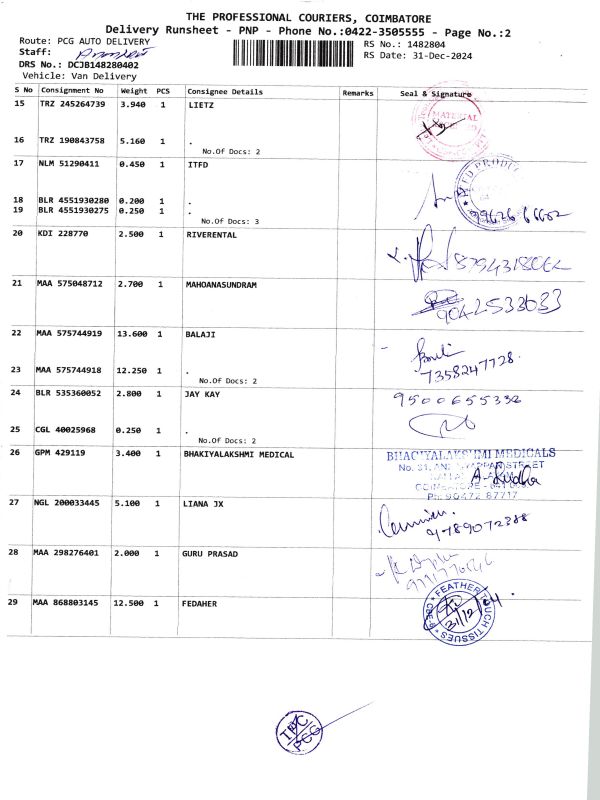 THE PROFESSIONAL COURIERS, COIMBATORE
Delivery Runsheet - PNP - Phone No.:0422-3505555 - Page No.:2
Route: PCG AUTO DELIVERY RS No.: 1482804
Staff: RS Date: 31-Dec-2024
DRS No.: DCJB148280402
Vehicle: Van Delivery
S No Consignment No Weight PCS Consignee Details Remarks Seal & Signature
15 TRZ 245264739 3.940 1 LIETZ
MATERIAL
16 TRZ 190843758 5.160 1 .
No.Of Docs: 2
17 NLM 51290411 0.450 1 ITFD
18 BLR 4551930280 0.200 1 .
19 BLR 4551930275 0.250 1 .
No.Of Docs: 3
20 KDI 228770 2.500 1 RIVERENTAL
21 MAA 575048712 2.700 1 MAHOANASUNDRAM
9042533033
22 MAA 575744919 13.600 1 BALAJI
7358247728
23 MAA 575744918 12.250 1 .
No.Of Docs: 2
24 BLR 535360052 2.800 1 JAY KAY
9500655332
25 CGL 40025968 0.250 1 .
No.Of Docs: 2
26 GPM 429119 3.400 1 BHAKIYALAKSHMI MEDICAL
BHAGIYALAKSHMI MEDICALS
STREET
Ph: 90472 87717
27 NGL 200033445 5.100 1 LIANA JX
9789072388
28 MAA 298276401 2.000 1 GURU PRASAD
29 MAA 868803145 12.500 1 FEDAHER
FEATHER TOUCH TISSUES
31/12/24
PCG